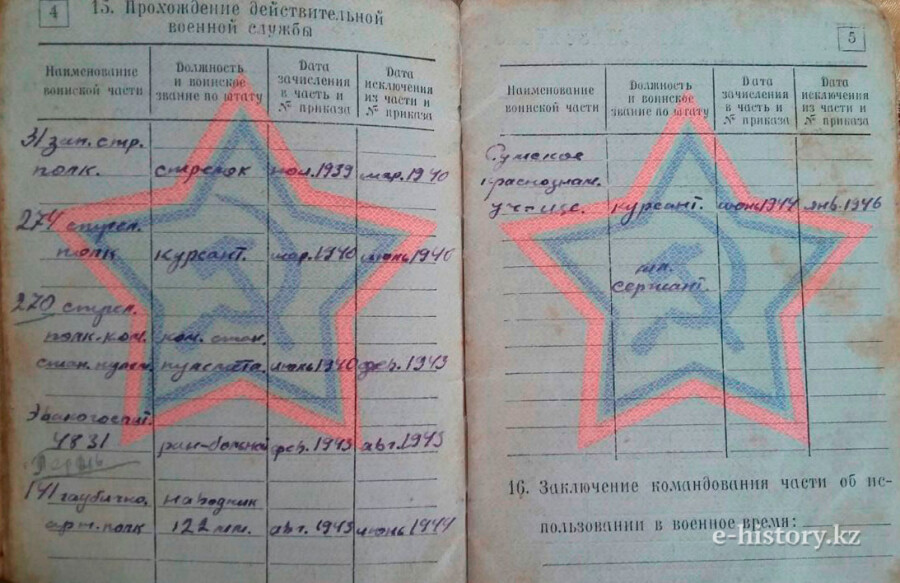 4
15. Прохождение действительной
военной службы
Наименование
воинской части
Должность
и воинское
звание по штату
Дата
зачисления
в часть и
№ приказа
Дата
исключения
из части и
№ приказа
31 зап. стр.
полк. стрелок ноя. 1939 мар. 1940
274 стрел.
полк курсант. мар. 1940 июнь 1940
270 стрел.
полк. ком. ком. стан.
стан. пулем. пулемета. июнь 1940 фев. 1943
Эвакогоспит.
4831 ран-больной фев. 1943 авг. 1943
141 гаубично. наводчик
арт. полк 122 мм. авг. 1943 июнь 1944
5
Наименование
воинской части
Должность
и воинское
звание по штату
Дата
зачисления
в часть и
№ приказа
Дата
исключения
из части и
№ приказа
Сумское
краснознам.
училище. курсант. июнь 1944 янв. 1946
мл.
сержант.
16. Заключение командования части об ис-
пользовании в военное время:
e-history.kz